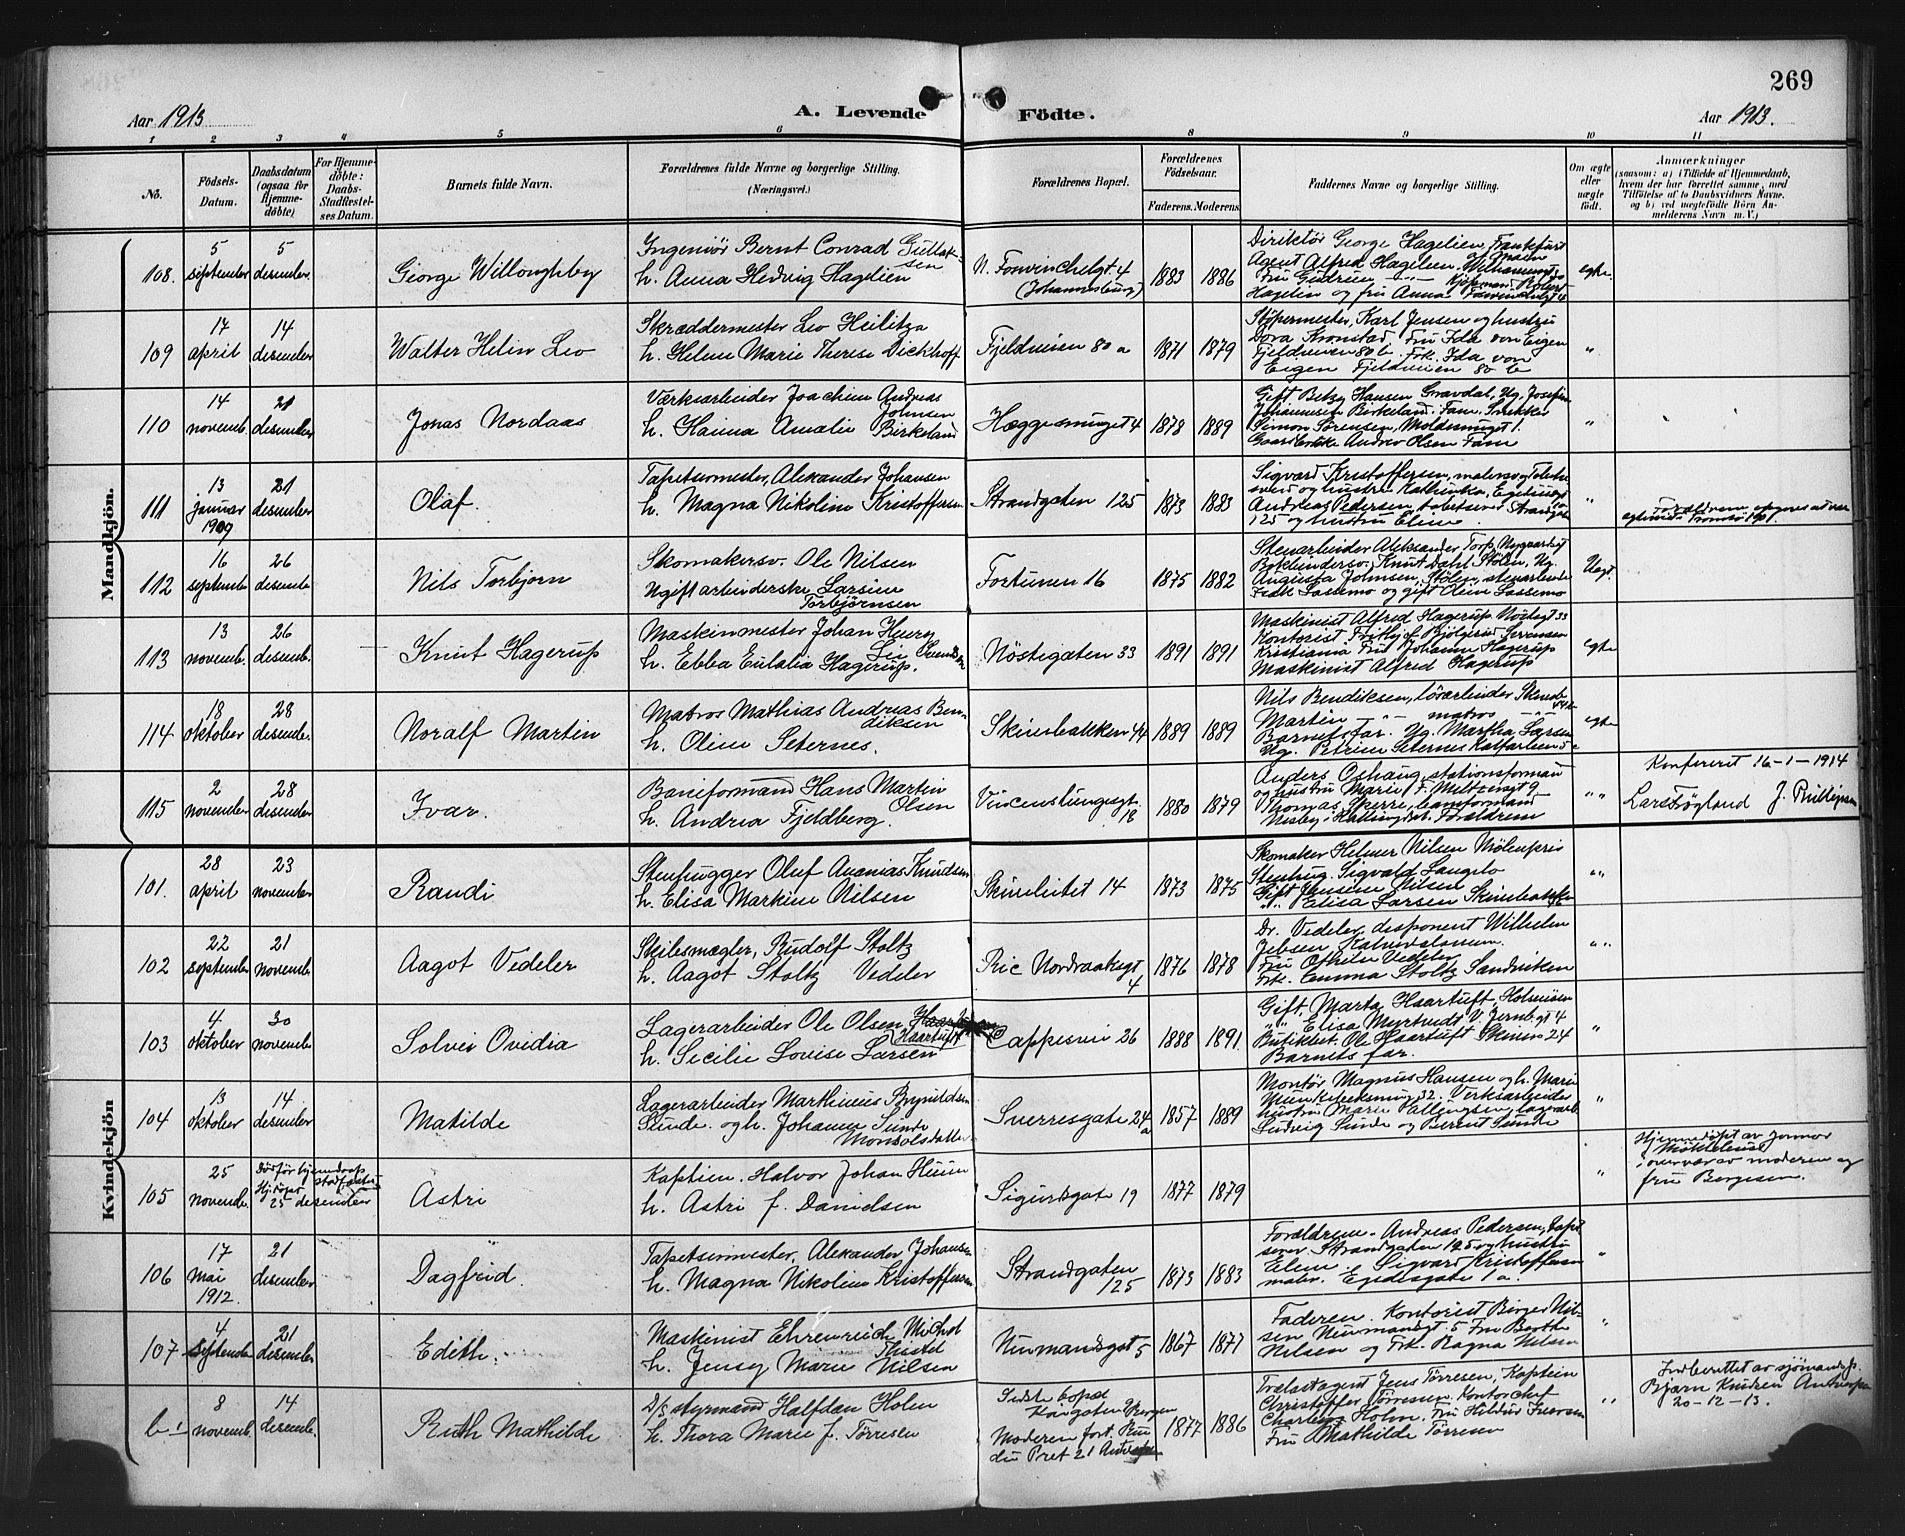 269
Aar 1913. A. Levende Födte. Aar 1913.
1 2 3 4 5 6 8 9 10 11
No.
Födsels-
Datum.
Daabsdatum
(ogsaa for
Hjemme-
döbte)
For Hjemme-
döbte:
Daabs-
Stadfæstel-
ses Datum.
Barnets fulde Navn.
Forældrenes fulde Navne og borgerlige Stilling.
(Næringsvei.)
Forældrenes Bopæl.
Forældrenes
Födselsaar.
Faderens. Moderens.
Faddernes Navne og borgerlige Stilling.
Om ægte
eller
uægte
födt.
Anmærkninger
(saasom: a) i Tilfælde af Hjemmedaab,
hvem der har forrettet samme, med
Tilföielse af to Daabsvidners Navne.
og b) ved uægtefödte Börn An-
melderens Navn m. V.)
Mandkjön.
108. 5 september 5 desember George Willoughby
Ingeniør Bernt Conrad Gullak-
sen
h. Anna Hedvig Hagelien
(Johannesburg) 1883 1886
Direktør George Hagelien, Frankfurt
Agent Alfred Hagelien,
Fru Gudrun Kjøpmand
Hagelin og fru Anna
egte
109 17 april 14 desember Walter Helin Leo
Skræddermester Leo Heilitza
h. Helene Marie Therese Dickhoff
Fjeldveien 80 a 1871 1879
Støpermester, Karl Jensen og hustru
Dora Kronstad, Fru Ida von Eigen
Fjeldveien 80 b. Frk. Ida von
Eigen Fjeldveien 80 b
"
110 14 novemb. 21 desember Jonas Nordaas
Værksarbeider Joachim Andreas
Johnsen
h. Hanna Amalie Birkeland
Heggesmuget 4 1878 1889
Gift Betzy Hansen Gravdal, Ug. Josefin
Johannesen Birkeland. Fane. Snekker
Simon Sørensen, Moldesmuget 1.
Gaardbruker Andrew Olsen Fane
"
111 13 januar 1909 21 desember Olaf.
Tapetsermester, Alexander Johansen
h. Magna Nikoline Kristoffersen
Strandgaten 125 1873 1883
Sigvard Kristoffersen, maler
og hustru Kathinka,
Andreas Pedersen, tapetserer Strandgaten
125 og hustru Eline
"
Forældrene
Tromsø
112 16 septembe 26 desembe Nils Torbjørn
Skomakersv. Ole Nilsen
Ugift arbeiderske Larsine
Torbjørnsen
Fortunen 16 1875 1882
Stenarbeider Aleksander Torp, Nygaardsgt
Bokbindersv. Knut Dahl Stølen, Ug.
Augusta Johnsen, Stølen, stenarbeide
Sassemo og gift Oline Sassemo
Uegt.
113 13 novemb. 26 desemb. Knut Hagerup
Maskinmester Johan Henry
Lie
h. Ebba Eulalia Hagerup.
Nøstegaten 33 1891 1891
Maskinist Alfred Hagerup Nøstegt 33
Kontorist Fritjof
Kristiania Fru Johanne Hagerup
Maskinist Alfred Hagerup
egte
114 18 oktober 28 desembe. Noralf Martin
Matros Mathias Andreas Ben-
diksen
h. Oline Seternes.
Skivebakken 44 1889 1889
Nils Bendiksen, løsarbeider Skiveb.
44
Martin — " — matros — " —
Barnets far. Ug. Martha Larsen
Ug. Petrine Seternes Kalfarlien 5 c
egte
115 2 november 28 desember Ivar.
Baneformand Hans Martin
Olsen
h. Andrea Fjeldberg.
Vincenslungesgt.
18 1880 1879
Anders Oshaug, stationsformand
og hustru Marie F. Meltzersgt 9
Thomas Skerre, baneformand
Nesby i Hallingdal. Forældrene
" "
Konfereret 16-1-1914
Lars Føgland
Kvindekjön
101. 28 april 23 november Randi
Stenhugger Oluf Ananias Knudsen
h. Elisa Markine Nilsen
Skiveleitet 14 1873 1875
Skomaker Helmer Nilsen Møhlenpris
Stenhug. Sigvald Langelo
Gift Jensine Nilsen
" " Elisa Larsen Skivebakken
" "
102 22 september 21 novemb Aagot Vedeler
Skibsmægler, Rudolf Stoltz
h. Aagot Stoltz Vedeler
Ric Nordraaksgt
4 1876 1878
Dr. Vedeler, disponent Wilhelm
Jebsen, Kalvedalsveien.
Fru Othilie Vedeler
Frk. Emma Stoltz Sandviken
" "
103 4 oktober 30 novembe Solvei Ovidia
Lagerarbeider Ole Olsen
Haartuft
h. Secilie Lovise Larsen
Cappesvei 26 1888 1891.
Gift. Marta Haartuft, Holsenøen
" " Elisa Myrtvedt V. Jernbgt 4
Butikbet. Ole Haartuft Skiven 24
Barnets far.
"
104 13 oktober 14 desember Matilde
Lagerarbeider Marthinus Brynildsen
Sunde. og h. Johanne Sunde
Monsdatter
Sverresgate 24
a 1857 1889
Montør Magnus Hansen og h. Marie
Munkebekksmug 32. Verksarbeider
hustru Marie lagerarb
Ludvig Sunde og Berent Sunde
"
105 25 novembe. Hj.døpt 25 desember Astri
Kaptein. Halvor Johan Huun
h. Astri f. Danielsen
Sigurdsgate 19 1877 1879
"
Hjemmedøpt av jormor
Mökkelhus
i overvær av moderen og
fru Børgesen.
106 17 mai 1912. 21 desember Dagfrid.
Tapetsermester, Alexander Johansen
h. Magna Nikoline Kristoffersen
Strandgaten
125 1873 1883
Forældrene. Andreas Pedersen, tapet
serer Strandgaten 125 og hustru
Eline, Sigvard Kristoffersen
maler. Egedesgate 1 a.
"
107 4 september 21 desember Edith.
Maskinist Ehrenreich Michal
Thisted
h. Jensy Marie Nilsen
Neumandsgat 5 1867 1877
Faderen. Kontorist Birger Nil-
sen Neumandsgt. 5 Fru Berthe
Nilsen og Frk. Ragna Nilsen
"
b 1 8 novemb. 14 desembe. Ruth Mathilde
D/S styrmand Halfdan Holm
h. Thora Marie f. Tørresen
Sidste bopæl
Bergen
Moderen fort. Rue
du Pret 21 Antwerpen
1877 1886
Trælastagent Jens Tørresen, Kaptein
Christoffer Tørresen. Kontorchef
Charles Holm. Fru Hildur Iversen
Fru Mathilde Tørresen
" "
Indberettet av sjømandsp.
Bjarn Knudsen Antwerpen
20-12-13.